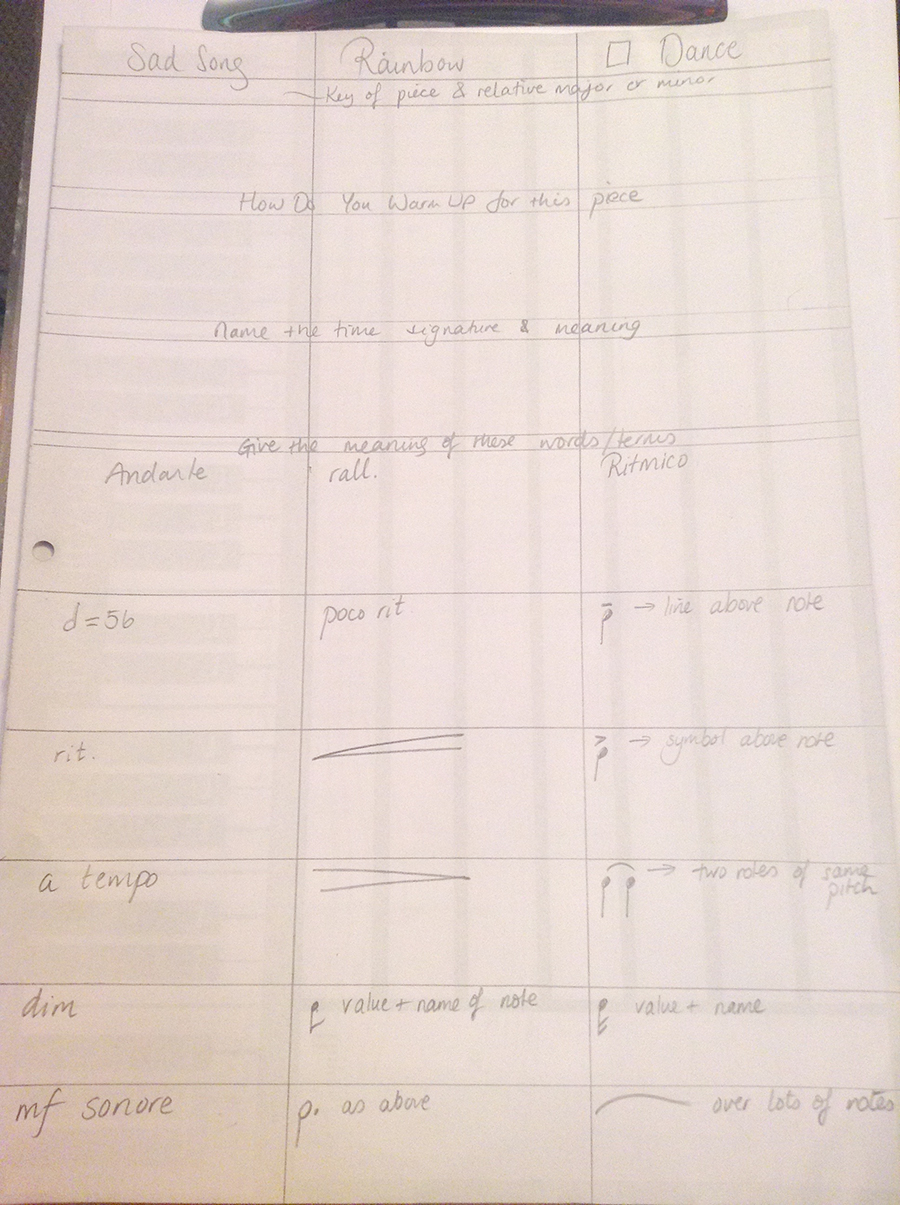 Sad Song Rainbow □ Dance
Key of piece & relative major or minor
How Do You Warm UP for this piece
Name the time signature & meaning
Give the meaning of these words/terms
Andante rall. Ritmico
d=56 poco rit → line above note
rit. > → symbol above note
a tempo → two notes of same
pitch
dim value + name of note value + name
mf sonore as above over lots of notes